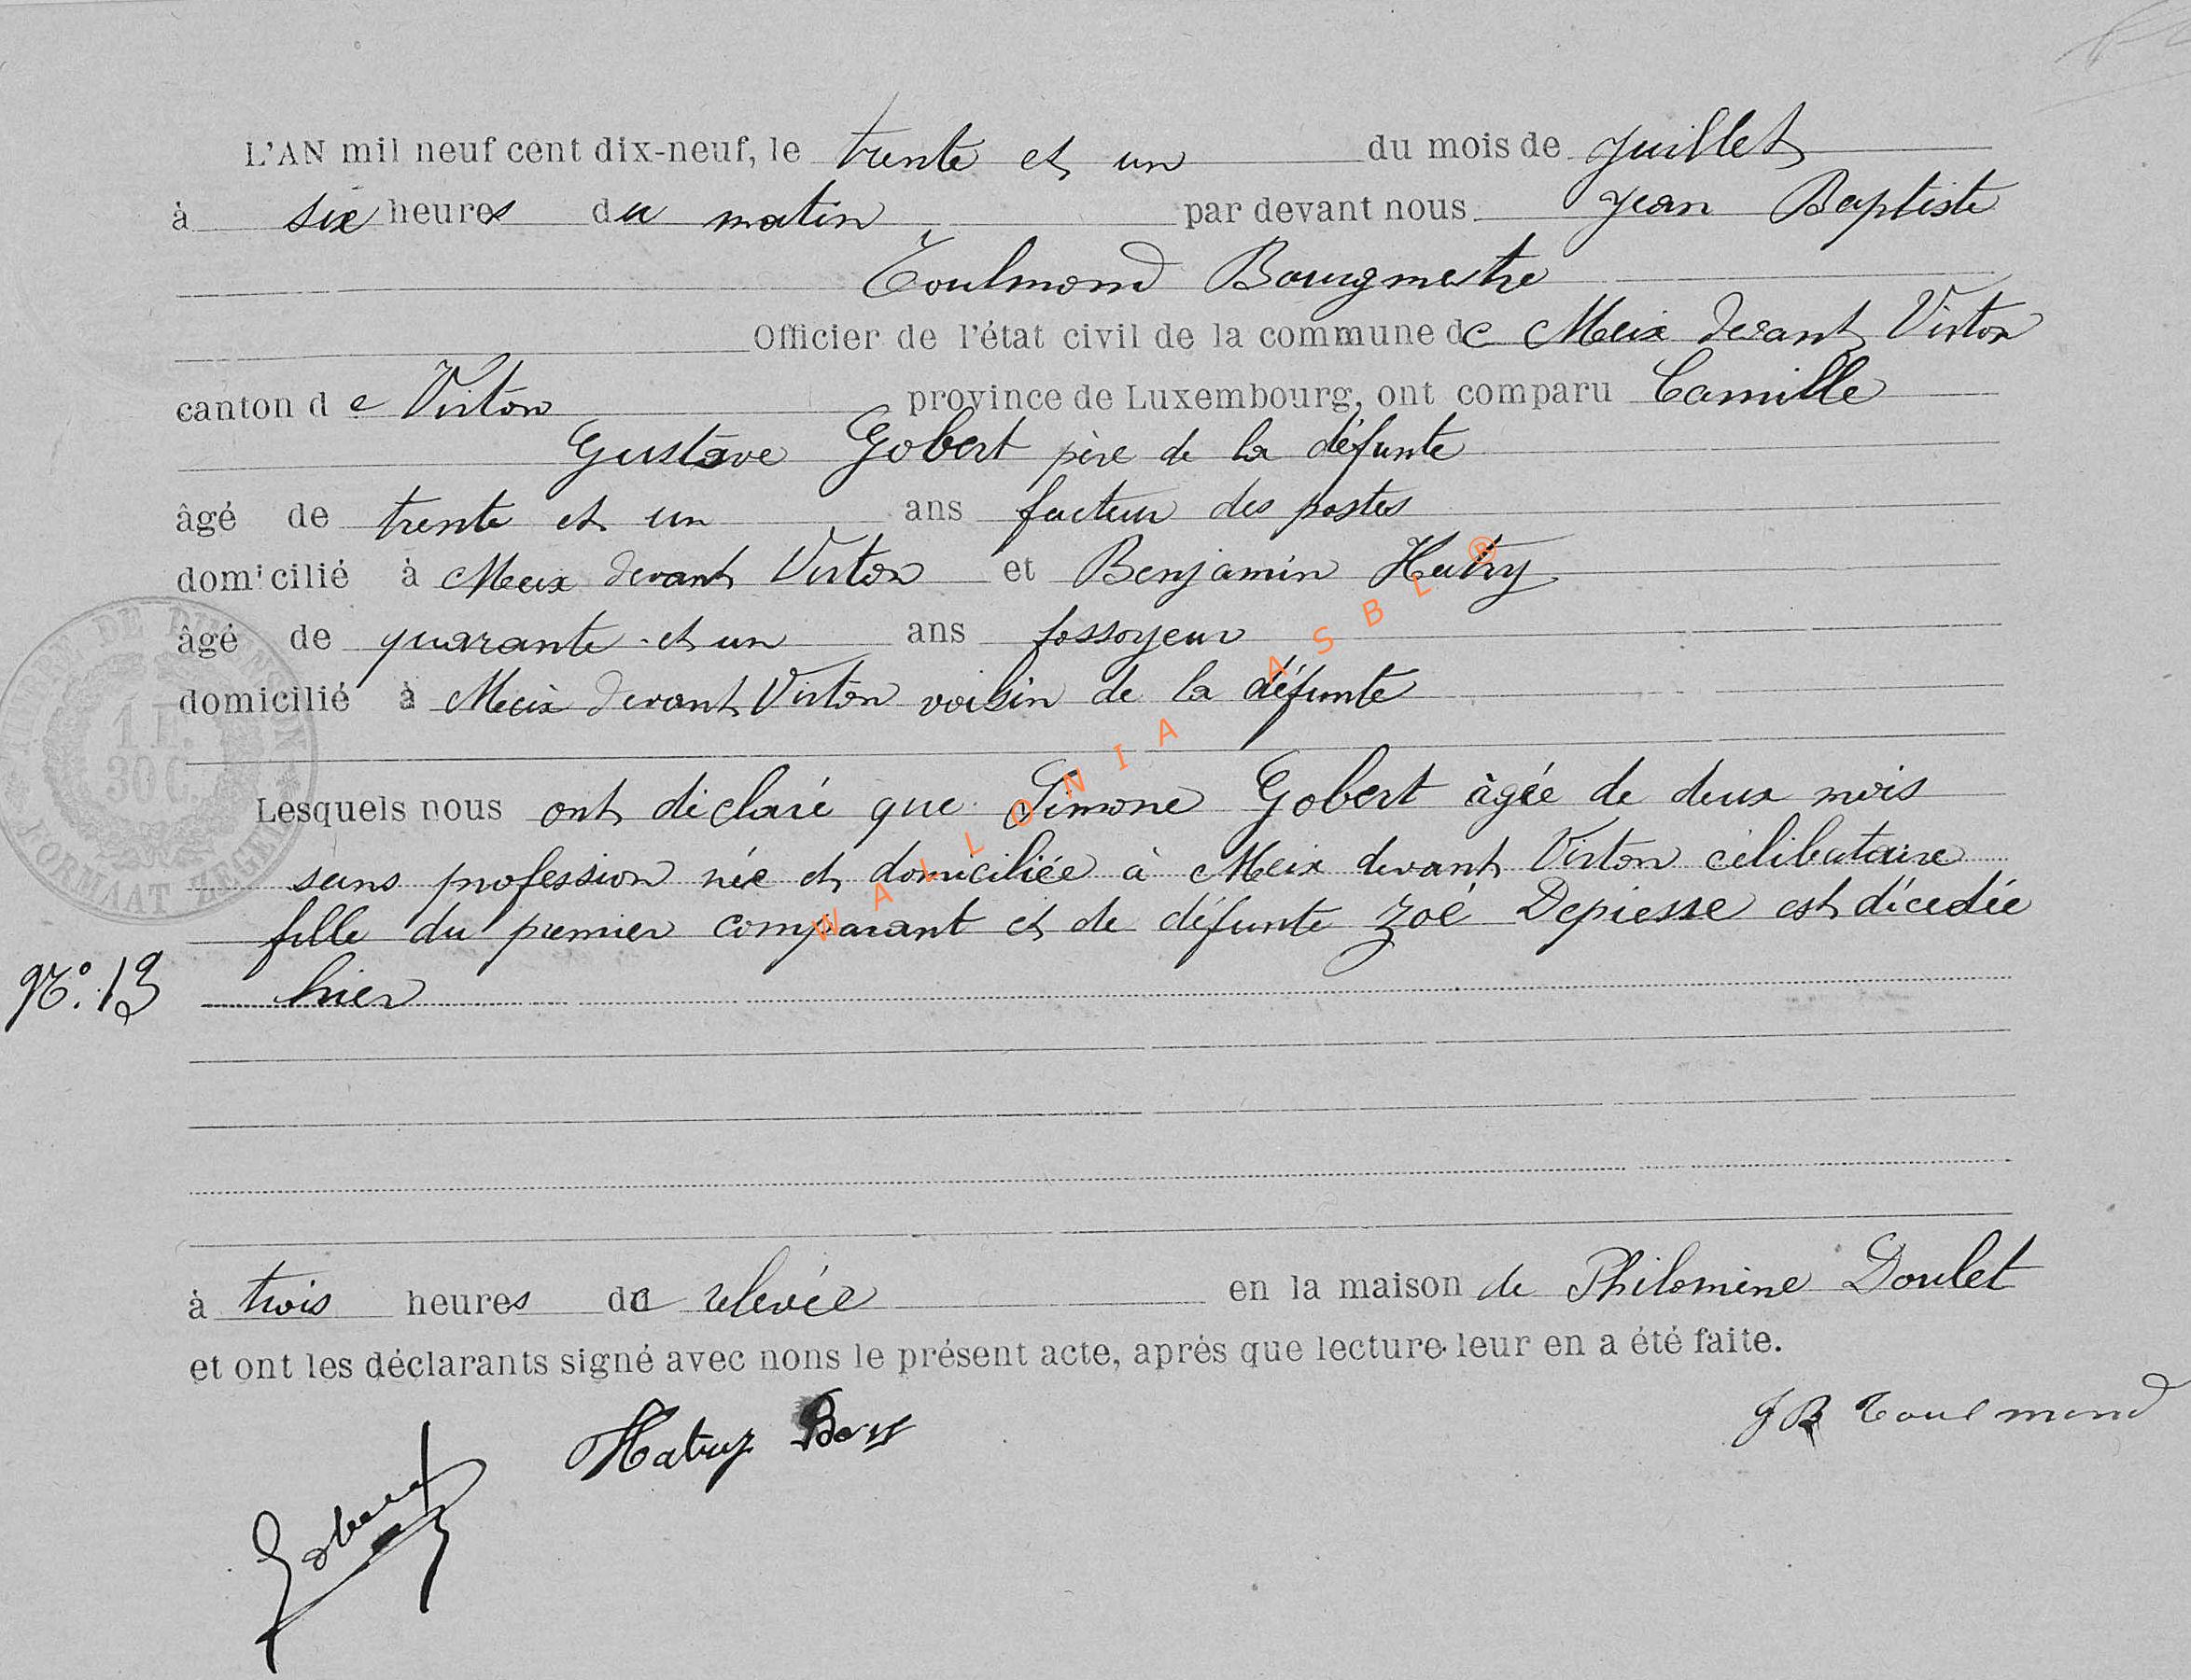 L'AN mil neuf cent dix-neuf, le trente et un du mois de Juillet
à six heures du matin par devant nous Jean Baptiste
Toulmond Bourgmestre
Officier de l'état civil de la commune de Meix devant Virton
canton de Virton province de Luxembourg, ont comparu Camille
Gustave Gobert père de la défunte
âgé de trente et un ans facteur des postes
domicilié à Meix devant Virton et Benjamin Hatry
âgé de quarante et un ans fossoyeur
domicilié à Meix devant Virton voisin de la défunte
Lesquels nous ont déclaré que Simone Gobert âgée de deux mois
sans profession née et domiciliée à Meix devant Virton célibataire
fille du premier comparant et de défunte Zoé Depiesse est décédée
N°. 13 hier
à trois heures de relevée en la maison de Philomène Doulet
et ont les déclarants signé avec nons le présent acte, après que lecture leur en a été faite.
Hatry JB Toulmond
Gobert
1 F.
30 C.
WALLONIA ASBL ®